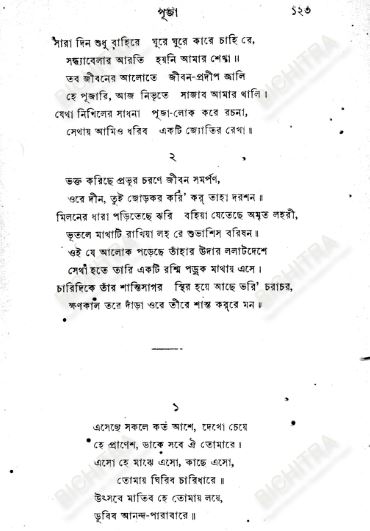 পূজা ১২৩
সারা দিন শুধু বাহিরে ঘুরে ঘুরে কারে চাহি রে,
সন্ধ্যাবেলার আরতি হয়নি আমার শেখা॥
তব জীবনের আলোতে জীবন-প্রদীপ জ্বালি
হে পূজারি, আজ নিভৃতে সাজাব আমার থালি।
যেথা নিখিলের সাধনা পূজা-লোক করে রচনা,
সেথায় আমিও ধরিব একটি জ্যোতির রেখা॥
২
ভক্ত করিছে প্রভুর চরণে জীবন সমর্পণ,
ওরে দীন, তুই জোড়কর করি' কর্ তাহা দরশন॥
মিলনের ধারা পড়িতেছে ঝরি বহিয়া যেতেছে অমৃত লহরী,
ভূতলে মাথাটি রাখিয়া লহ রে শুভাশিস বরিষন॥
ওই যে আলোক পড়েছে তাঁহার উদার ললাটদেশে
সেথা হতে তারি একটি রশ্মি পড়ুক মাথায় এসে।
চারিদিকে তাঁর শান্তিসাগর স্থির হয়ে আছে ভরি' চরাচর,
ক্ষণকাল তরে দাঁড়া ওরে তীরে শান্ত কর্‌রে মন॥
১
এসেছে সকলে কত আশে, দেখো চেয়ে
হে প্রাণেশ, ডাকে সবে ঐ তোমারে।
এসো হে মাঝে এসো, কাছে এসো,
তোমায় ঘিরিব চারিধারে॥
উৎসবে মাতিব হে তোমায় লয়ে,
ডুবিব আনন্দ-পারাবারে॥
BICHITRA
BICHITRA
BICHITRA
BICHITRA
BICHITRA